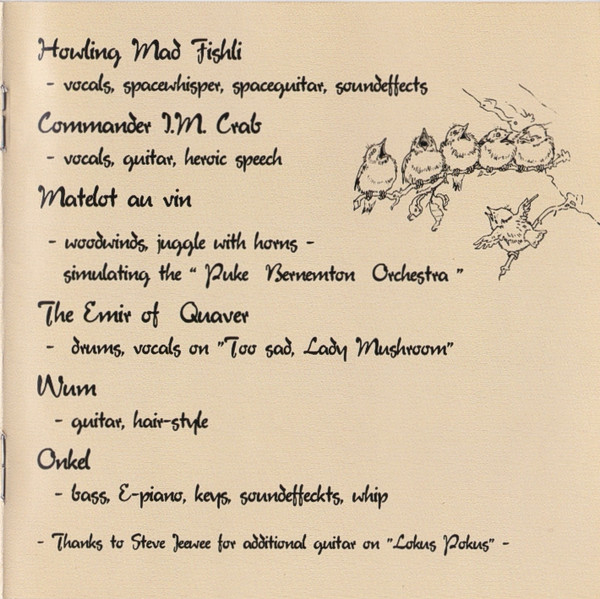 Howling Mad Fishli
- vocals, spacewhisper, spaceguitar, soundeffects
Commander I.M. Crab
- vocals, guitar, heroic speech
Matelot au vin
- woodwinds, juggle with horns -
simulating the “ Puke Bernemton Orchestra ”
The Emir of Quaver
- drums, vocals on ”Too sad, Lady Mushroom”
Wum
- guitar, hair-style
Onkel
- bass, E-piano, keys, soundeffeckts, whip
- Thanks to Steve Jeewee for additional guitar on ”Lokus Pokus” -